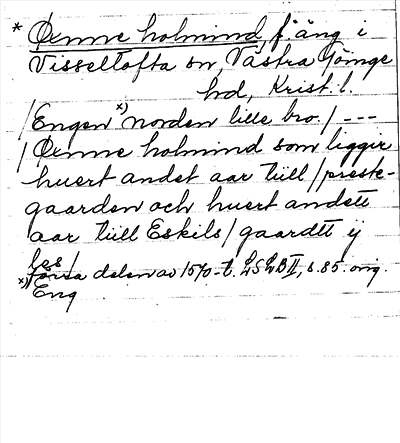 * Ørnne holmind, f. äng i
Visseltofta sn, Västra Göinge
hd, Krist. l.
/Engen x) norden lille bro./ ---
/Ørnne holmind som ligger
huert andet aar tüll/preste-
gaarden och huert andett
aar tüll Eskils/gaardtt ij
les/
första delen av 1570-t. LSLB II, s. 85. orig.
x) Eng